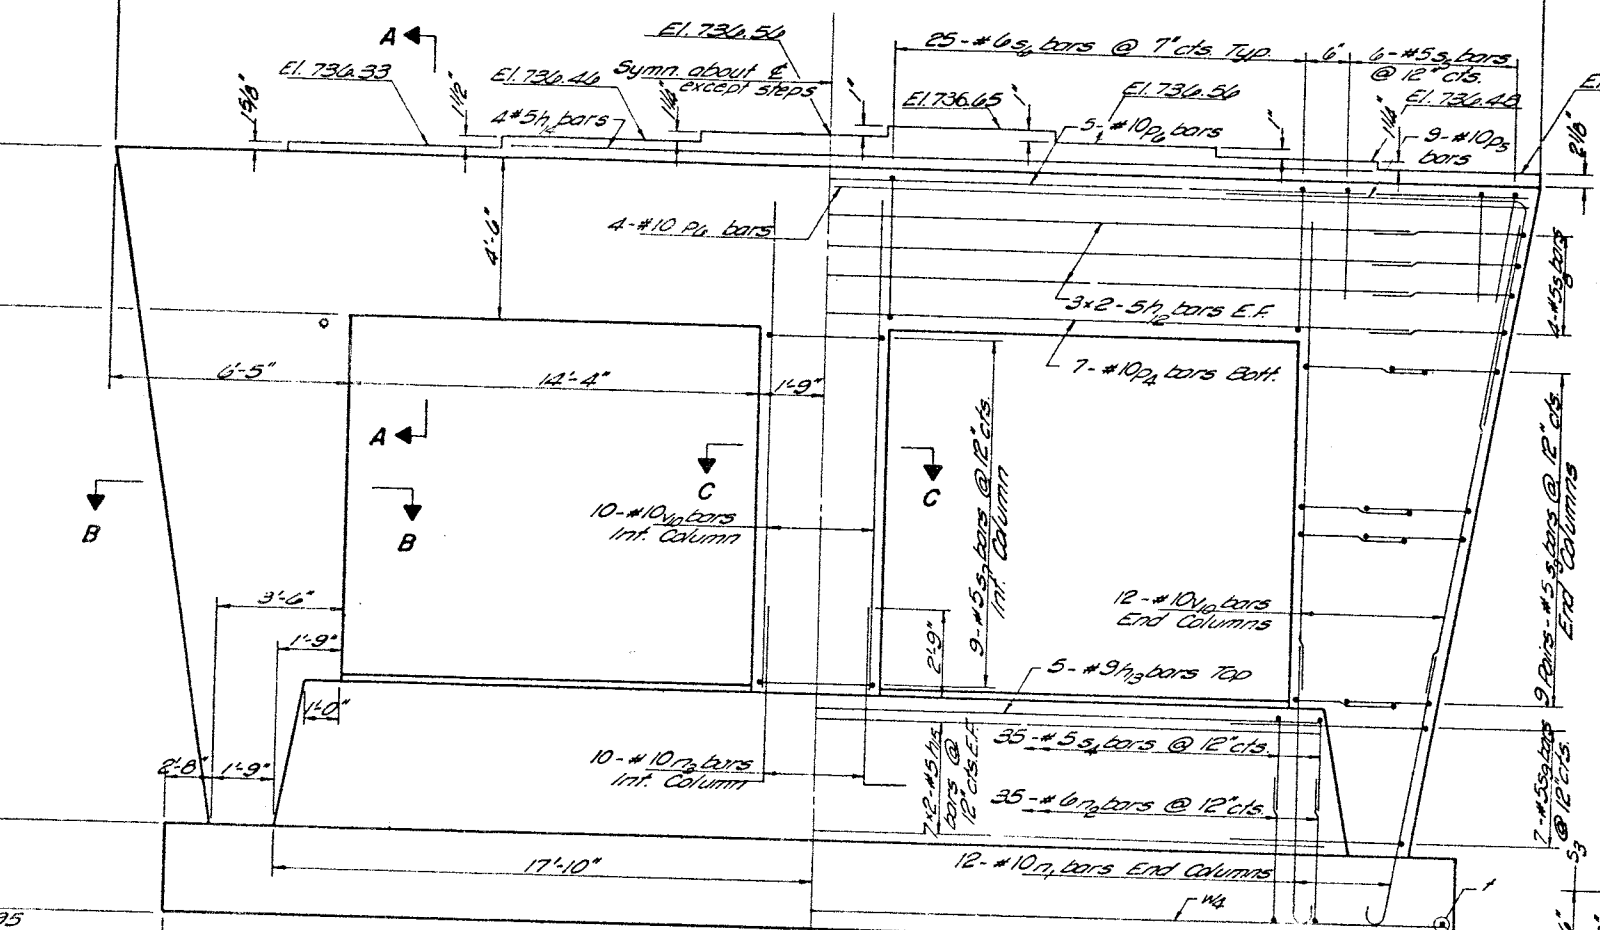 A
El. 736.56
25-#6s6 bars @ 7"cts. Typ.
6"
6-#5s bars
@ 12"cts.
El. 736.33
El. 736.46
Symn. about ℄
except steps
El. 736.65
El. 736.56
El. 736.48
1 5/8"
1 1/2"
1 1/4"
1"
1"
1"
1 1/4"
2 1/8"
4#5h14 bars
5-#10p6 bars
9-#10p5
bars
4'-6"
4-#10 P6 bars
4-#5s8 bars
3x2-5h12 bars E.F.
6'-5"
14'-4"
1'-9"
7-#10p4 bars Bott.
A
B
B
C
C
10-#10v10 bars
Int. Column
9-#5s7 bars @ 12"cts.
Int. Column
9 Pairs-#5s9 bars @ 12"cts.
End Columns
12-#10v10 bars
End Columns
3'-6"
1'-9"
2'-9"
5-#9h13 bars Top
1'-0"
2'-8"
1'-9"
10-#10n3 bars
Int. Column
35-#5s4 bars @ 12"cts.
7x2-#5h15
bars @
12"cts. E.F.
35-#6n2 bars @ 12"cts.
7-#5s9 bars
@ 12"cts.
17'-10"
12-#10n1 bars End Columns
S3
W4
t
95
6"